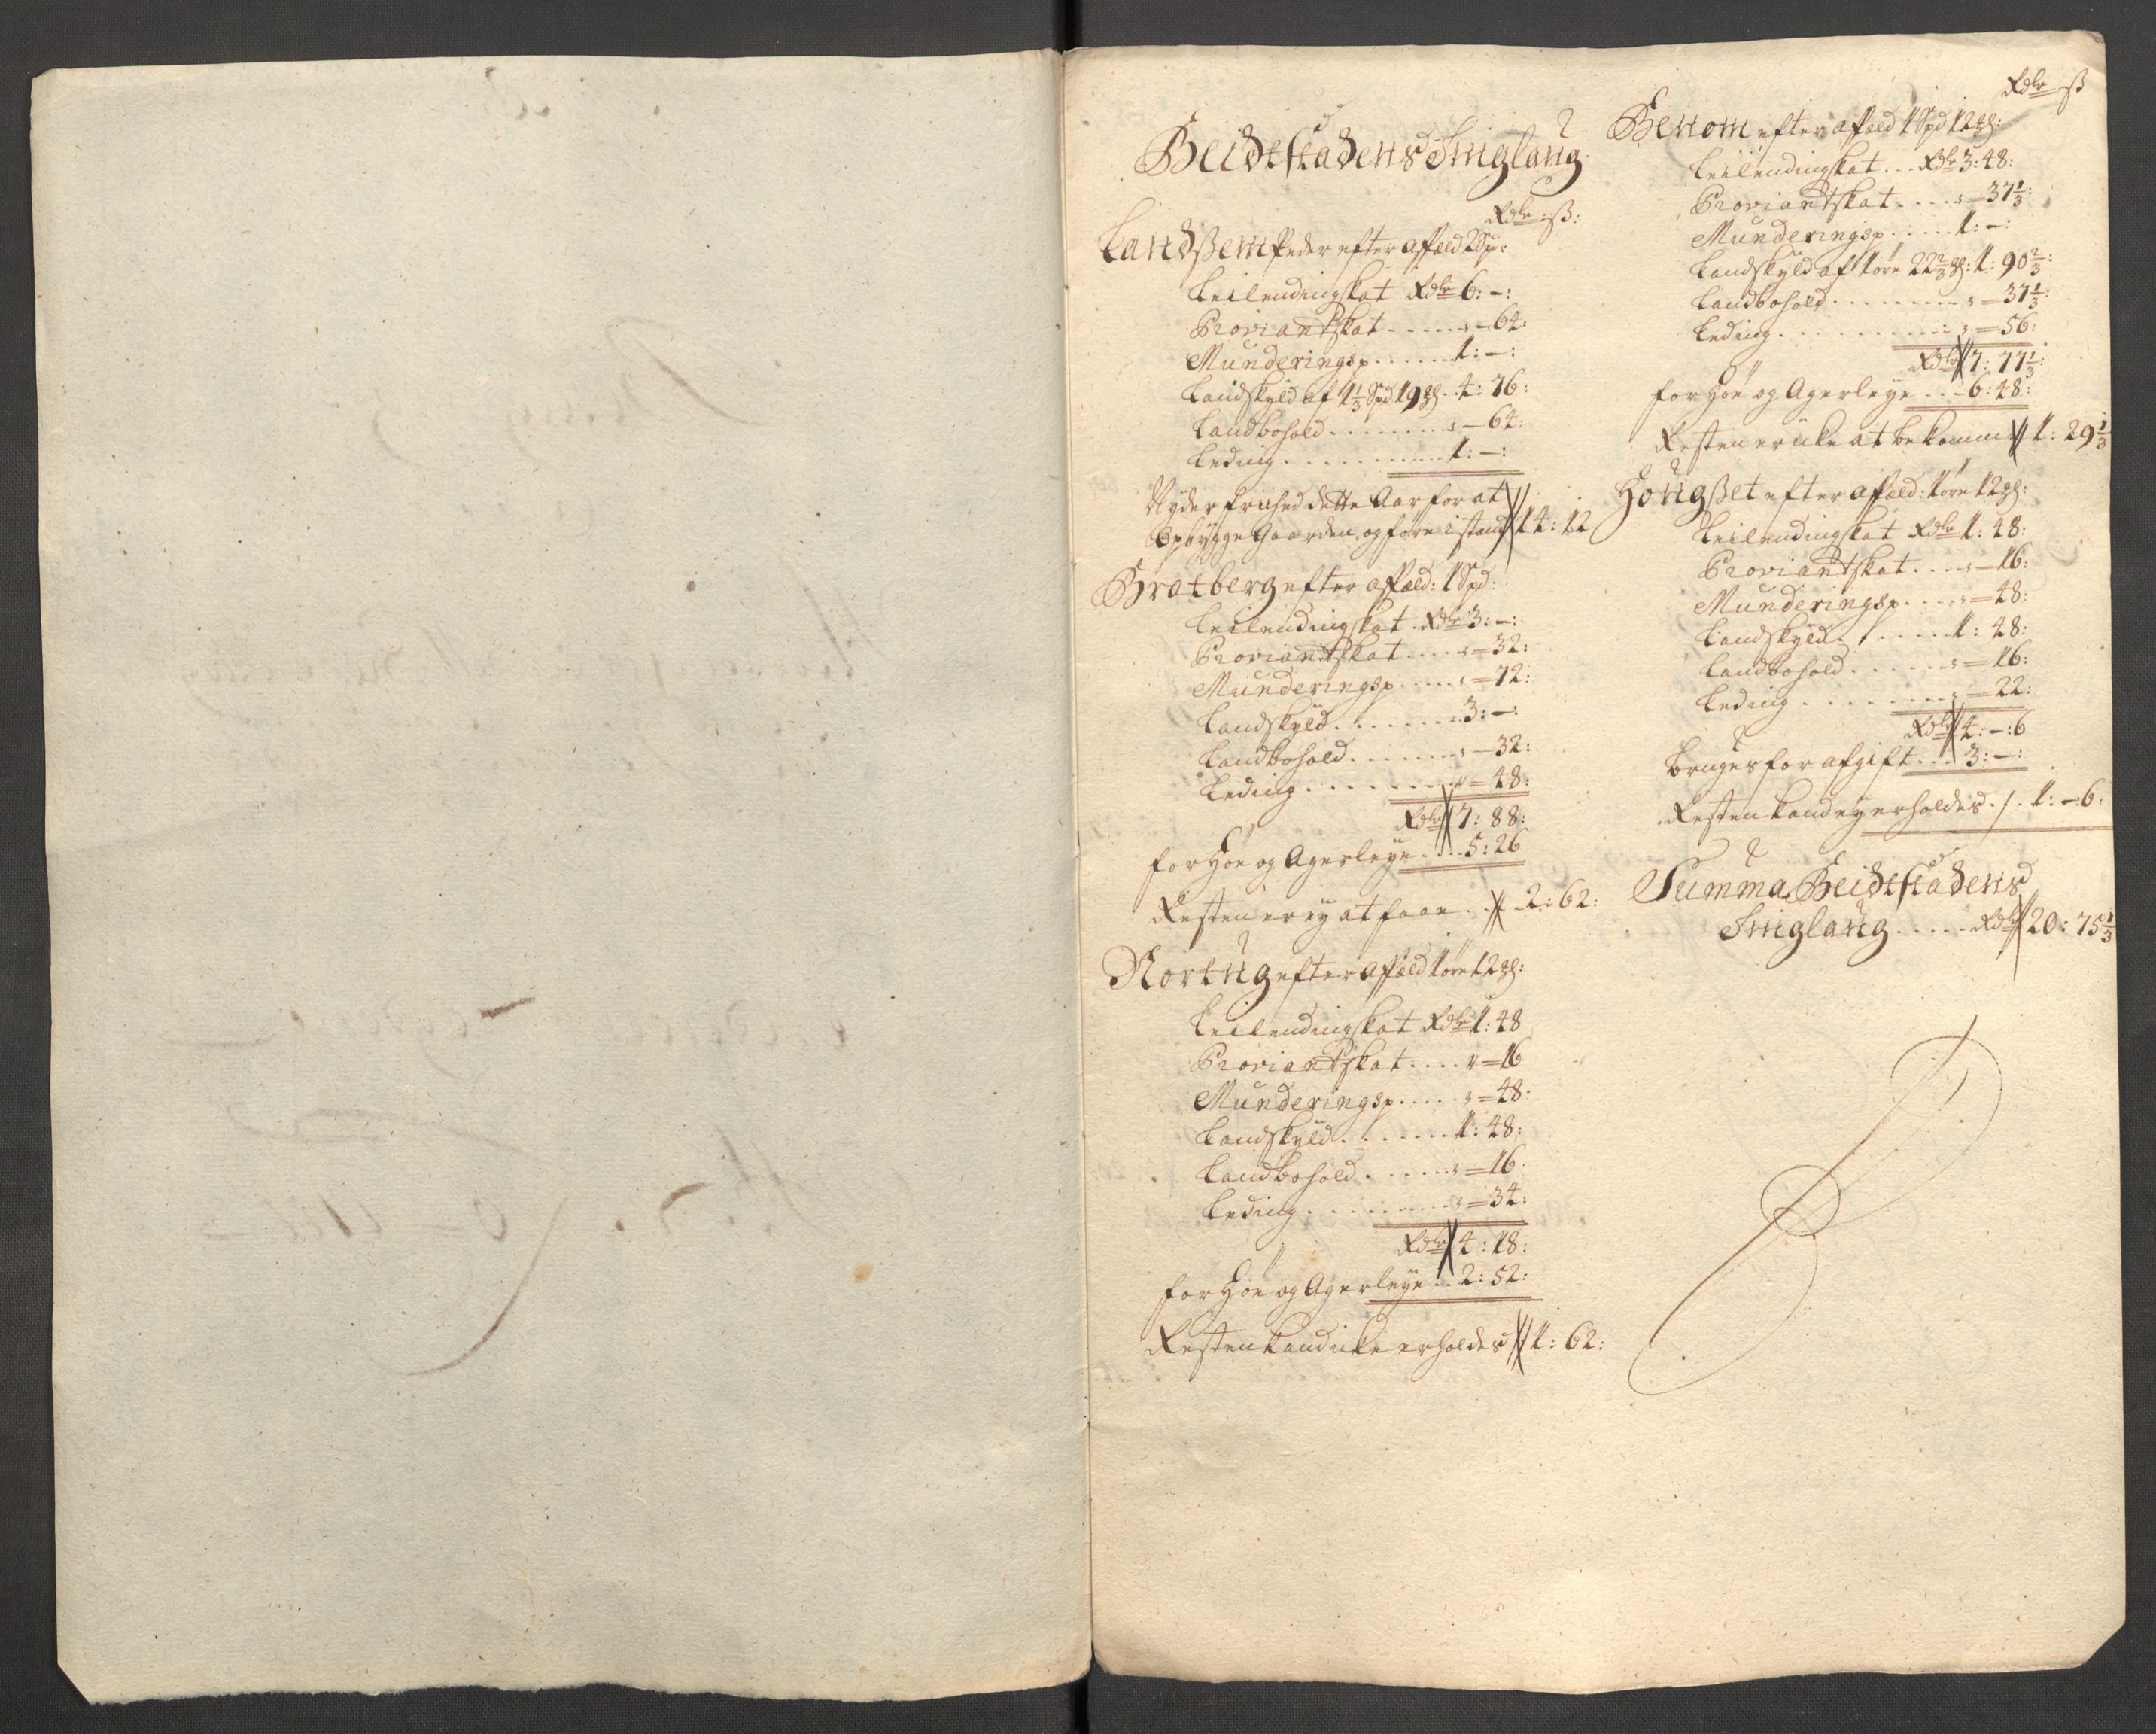 Beidstadens Tinglaug
Rdlr : ß:
Landßem Peder efter affæld 2 Sp:
Leilendingskat Rdlr 6: -:
Proviantskat . . . . . - 64:
Munderingsp . . . . . . 1: -:
Landskyld af 1 1/3 Spd 19 ₥. 4: 76:
Landbohold . . . . . . . . - 64:
Leding . . . . . . . . . . 1: -:
Nyder friehed dette Aar for at
Opbygge Gaarden, og føre i stand 14: 12
Bratberg efter affæld: 1 Spd:
Leilendingskat Rdlr 3: -:
Proviantskat . . . . - 32:
Munderingsp . . . . . - 72:
Landskyld . . . . . . . 3: -:
Landbohold . . . . . . . - 32:
Leding . . . . . . . . - 48:
Rdlr 7: 88:
for Høe og Agerleye . . . 5: 26
Resten er ey at faae . . 2: 62:
Nortug efter affæld 1 øre 12 ₥:
Leilendingskat Rdlr 1: 48
Proviantskat . . . . - 16
Munderingsp . . . . . - 48:
Landskyld . . . . . . . 1: 48:
Landbohold . . . . . . - 16:
Leding . . . . . . . . . - 34:
Rdlr 4: 18:
for Høe og Agerleye . . 2: 52:
Resten kand icke erholdes 1: 62:
Rdlr ß
Benom efter affæld 1 Spd 12 ₥:
Leilendingskat . . . Rdlr 3: 48:
Proviantskat . . . . - 37 1/3:
Munderingsp . . . . . 1: -:
Landskyld af 1 øre 22 2/3 ₥: 1: 90 2/3:
Landbohold . . . . . . . . - 37 1/3:
Leding . . . . . . . . . . - 56:
Rdlr 7: 77 1/3:
for Høe og Agerleye . . . 6: 48:
Resten er icke at bekomme 1: 29 1/3
Hougßet efter affæld: 1 øre 12 ₥:
Leilendingskat Rdlr 1: 48:
Proviantskat . . . . - 16:
Munderingsp . . . . - 48:
Landskyld . . . . . . 1: 48:
Landbohold . . . . . . - 16:
Leding . . . . . . . . - 22:
Rdlr 4: -: 6
bruges for afgift . . . 3: -:
Resten kand ey erholdes . / . 1: -: 6:
Summa Beidstadens
Tinglaug . . . . . Rdlr 20: 75 1/3